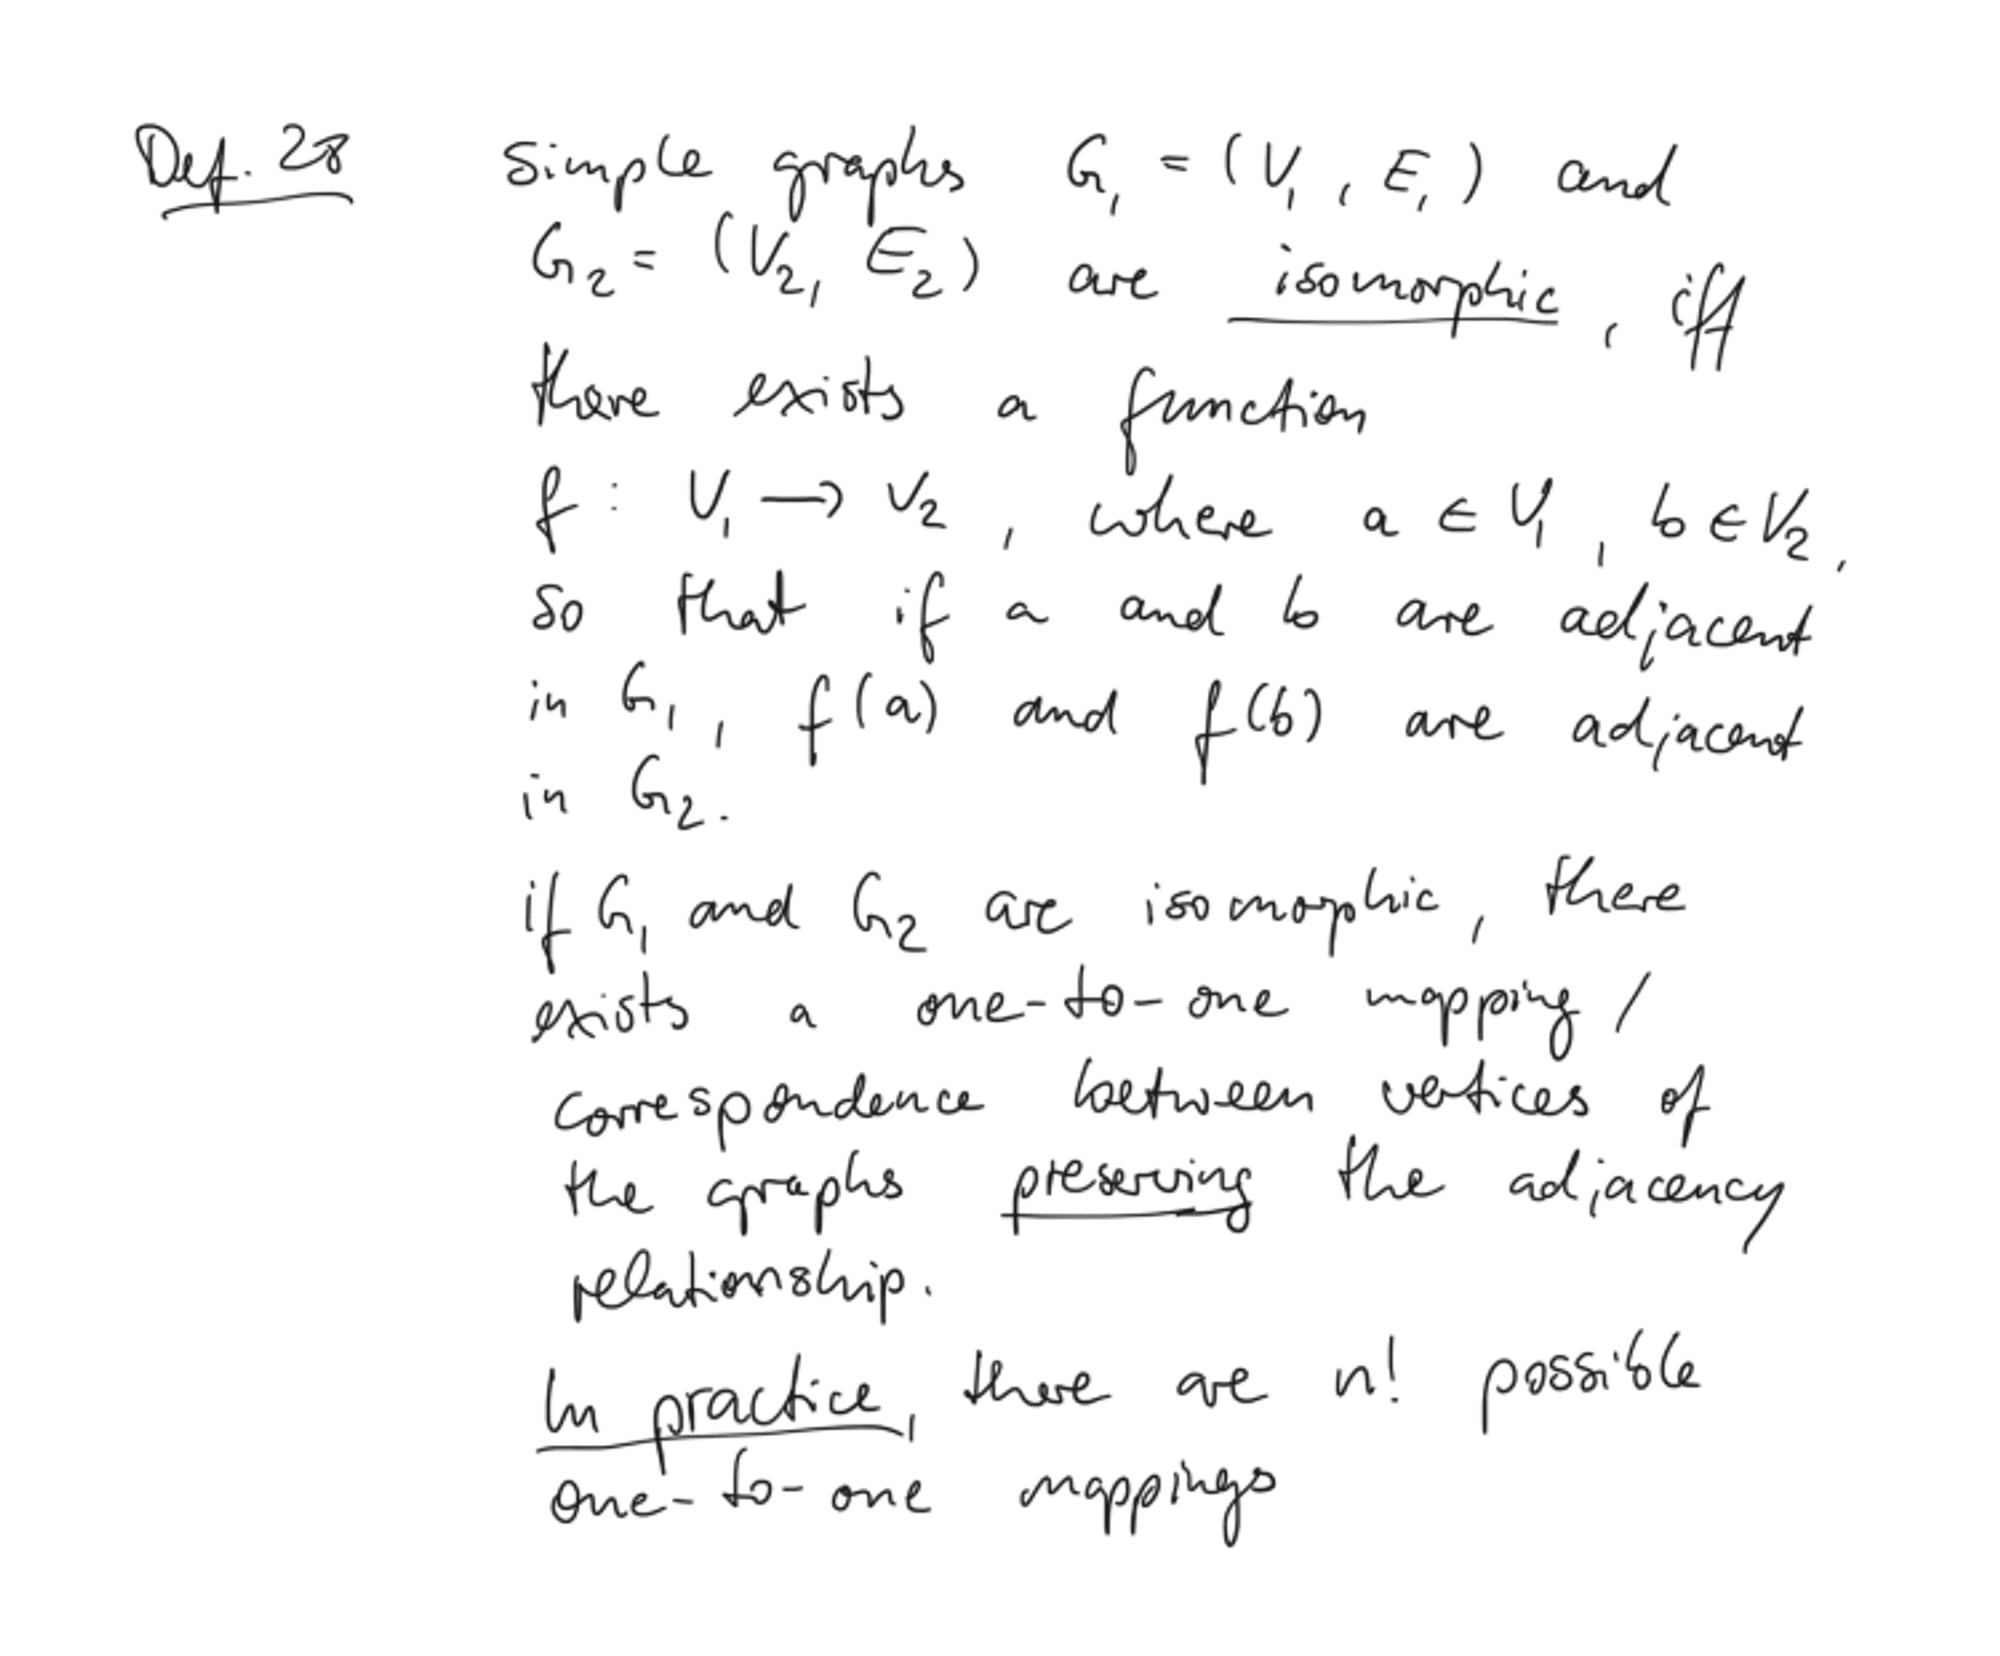 Def. 28 simple graphs G₁ = (V₁, E₁) and
G₂ = (V₂, E₂) are isomorphic, iff
there exists a function
f : V₁ → V₂, where a ∈ V₁, b ∈ V₂,
so that if a and b are adjacent
in G₁, f(a) and f(b) are adjacent
in G₂.
if G₁ and G₂ are isomorphic, there
exists a one-to-one mapping /
correspondence between vertices of
the graphs preserving the adjacency
relationship.
In practice, there are n! possible
one-to-one mappings